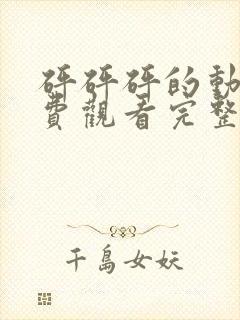 砰砰砰的動
費觀看完整
千島女妖